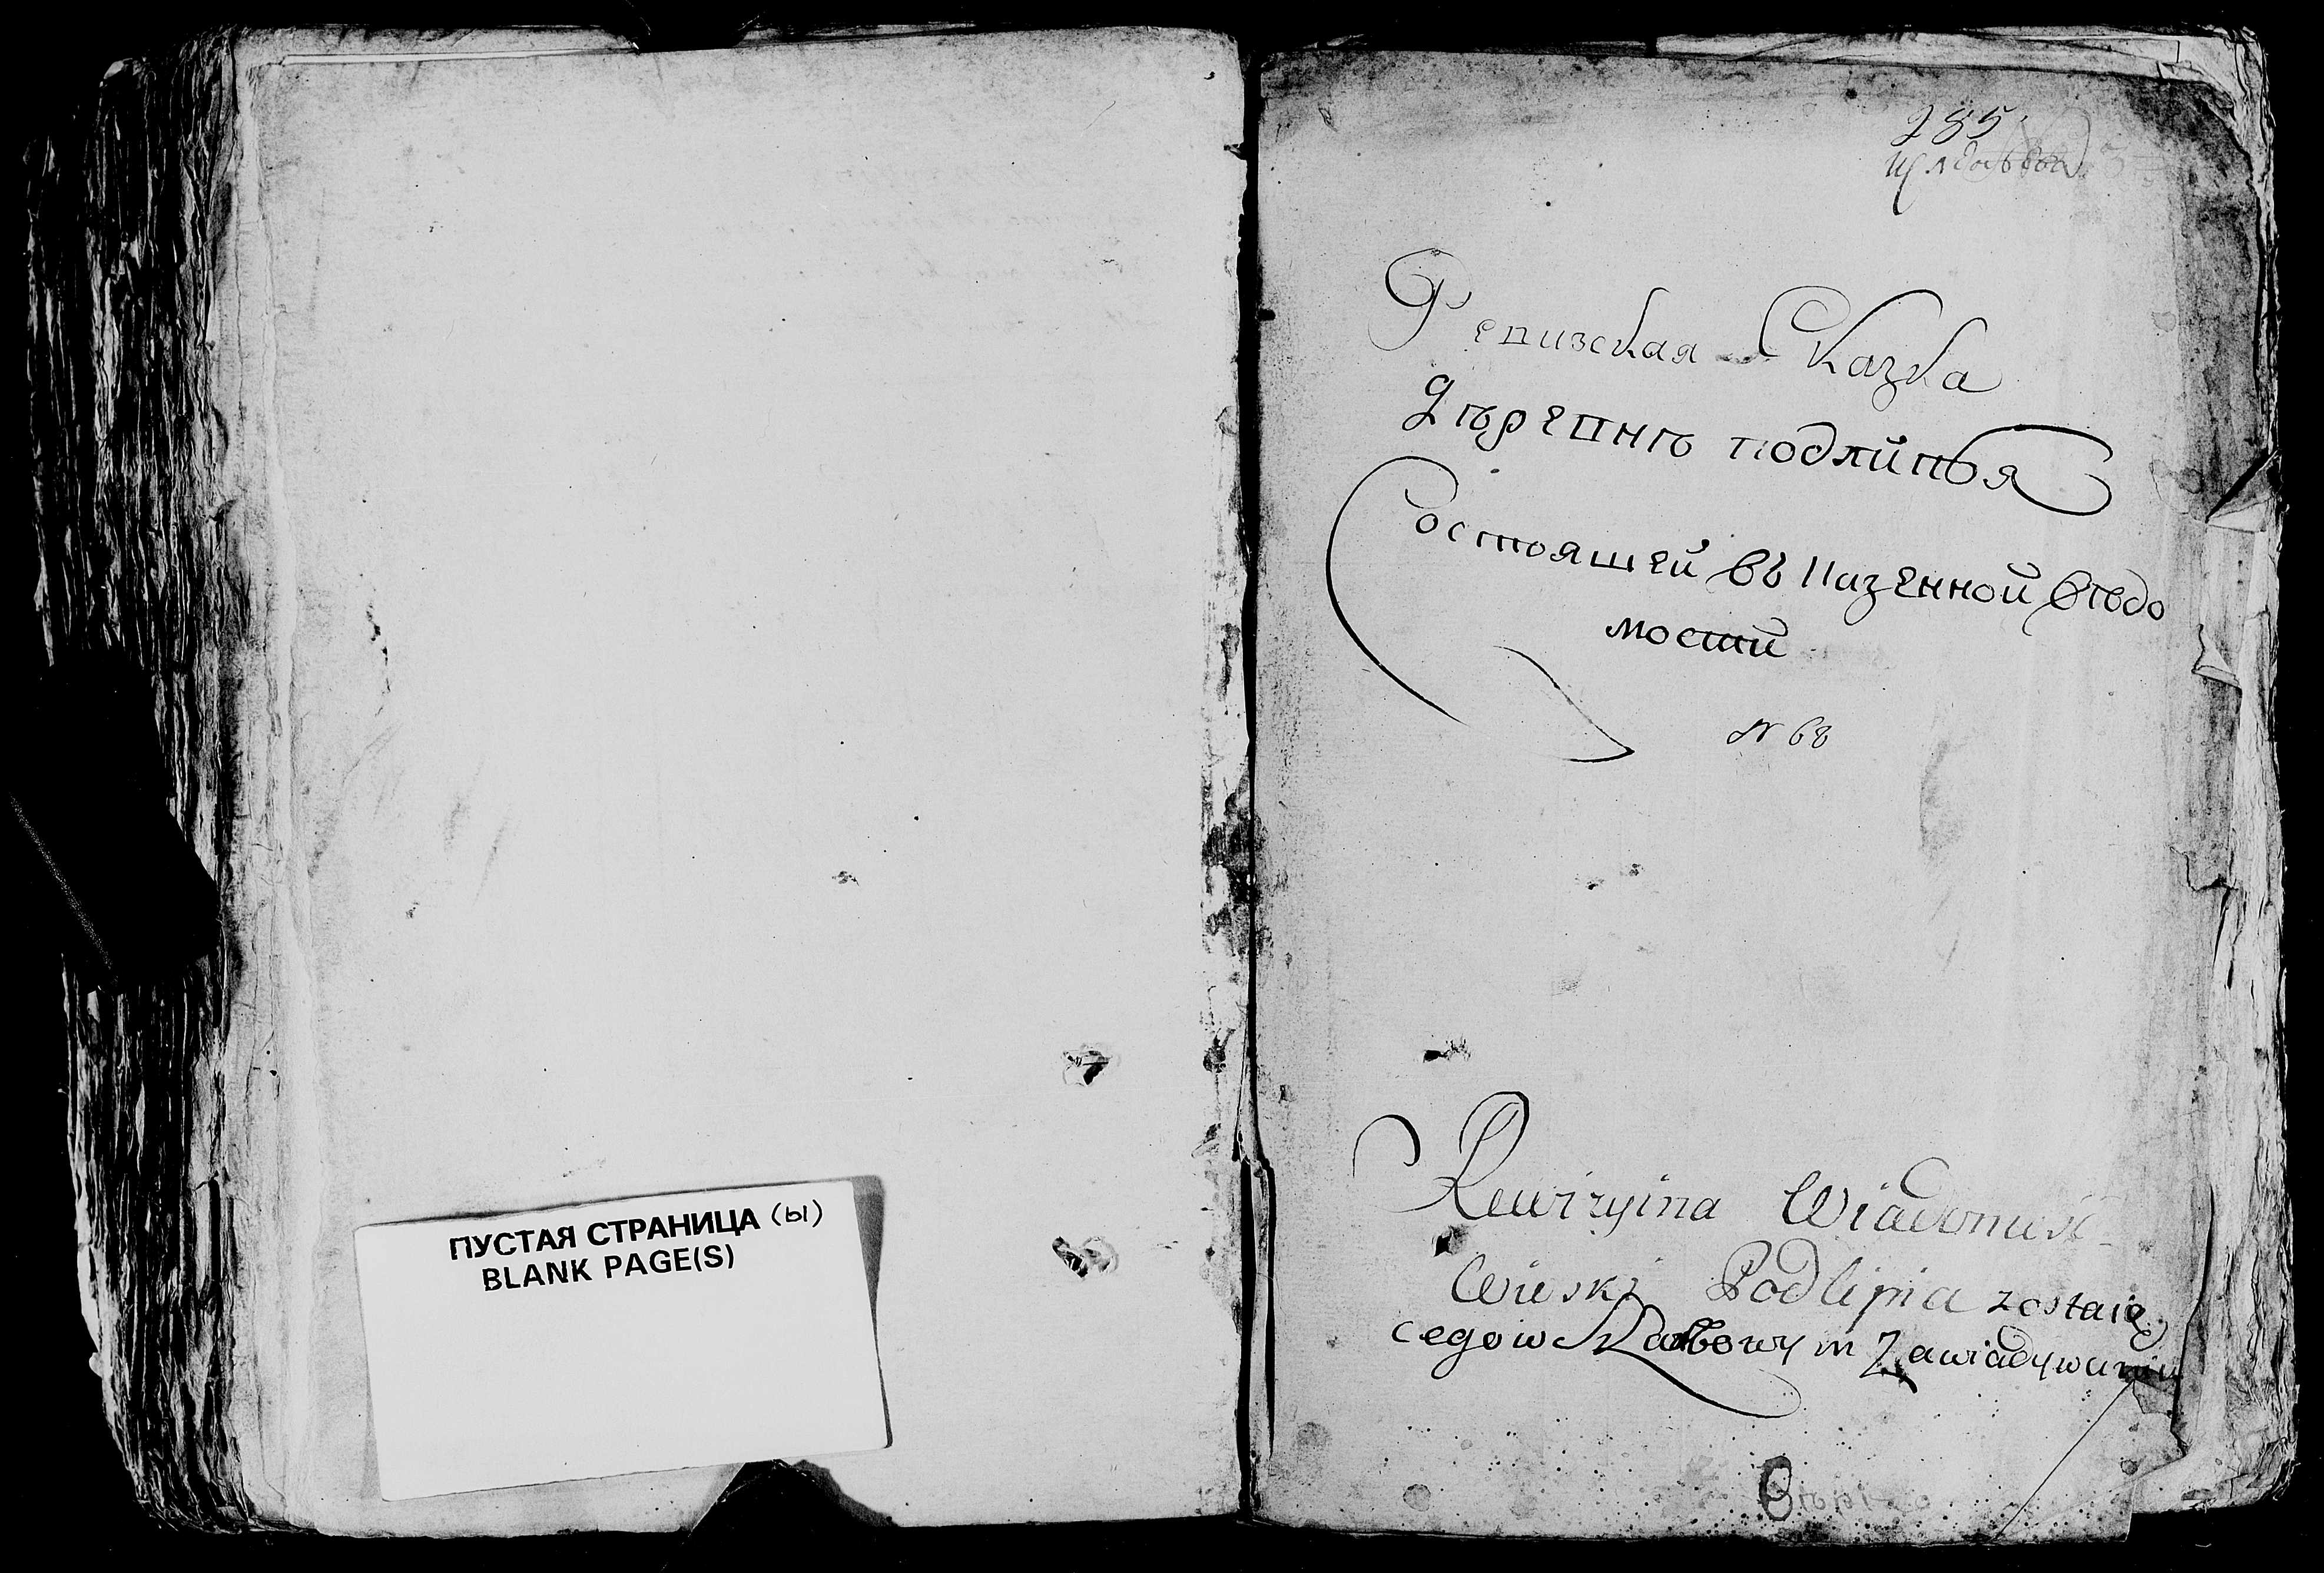 ПУСТАЯ СТРАНИЦА (ы)
BLANK PAGE(S)
285
Ревизская Сказка
дѣревнѣ подлипья
Состояшей въ Казенной вѣдо
мости
N 68
Rewizyina Wiadomość
Wioski Podlipia zostaią
cego w Skarbowym Zawiadywaniu